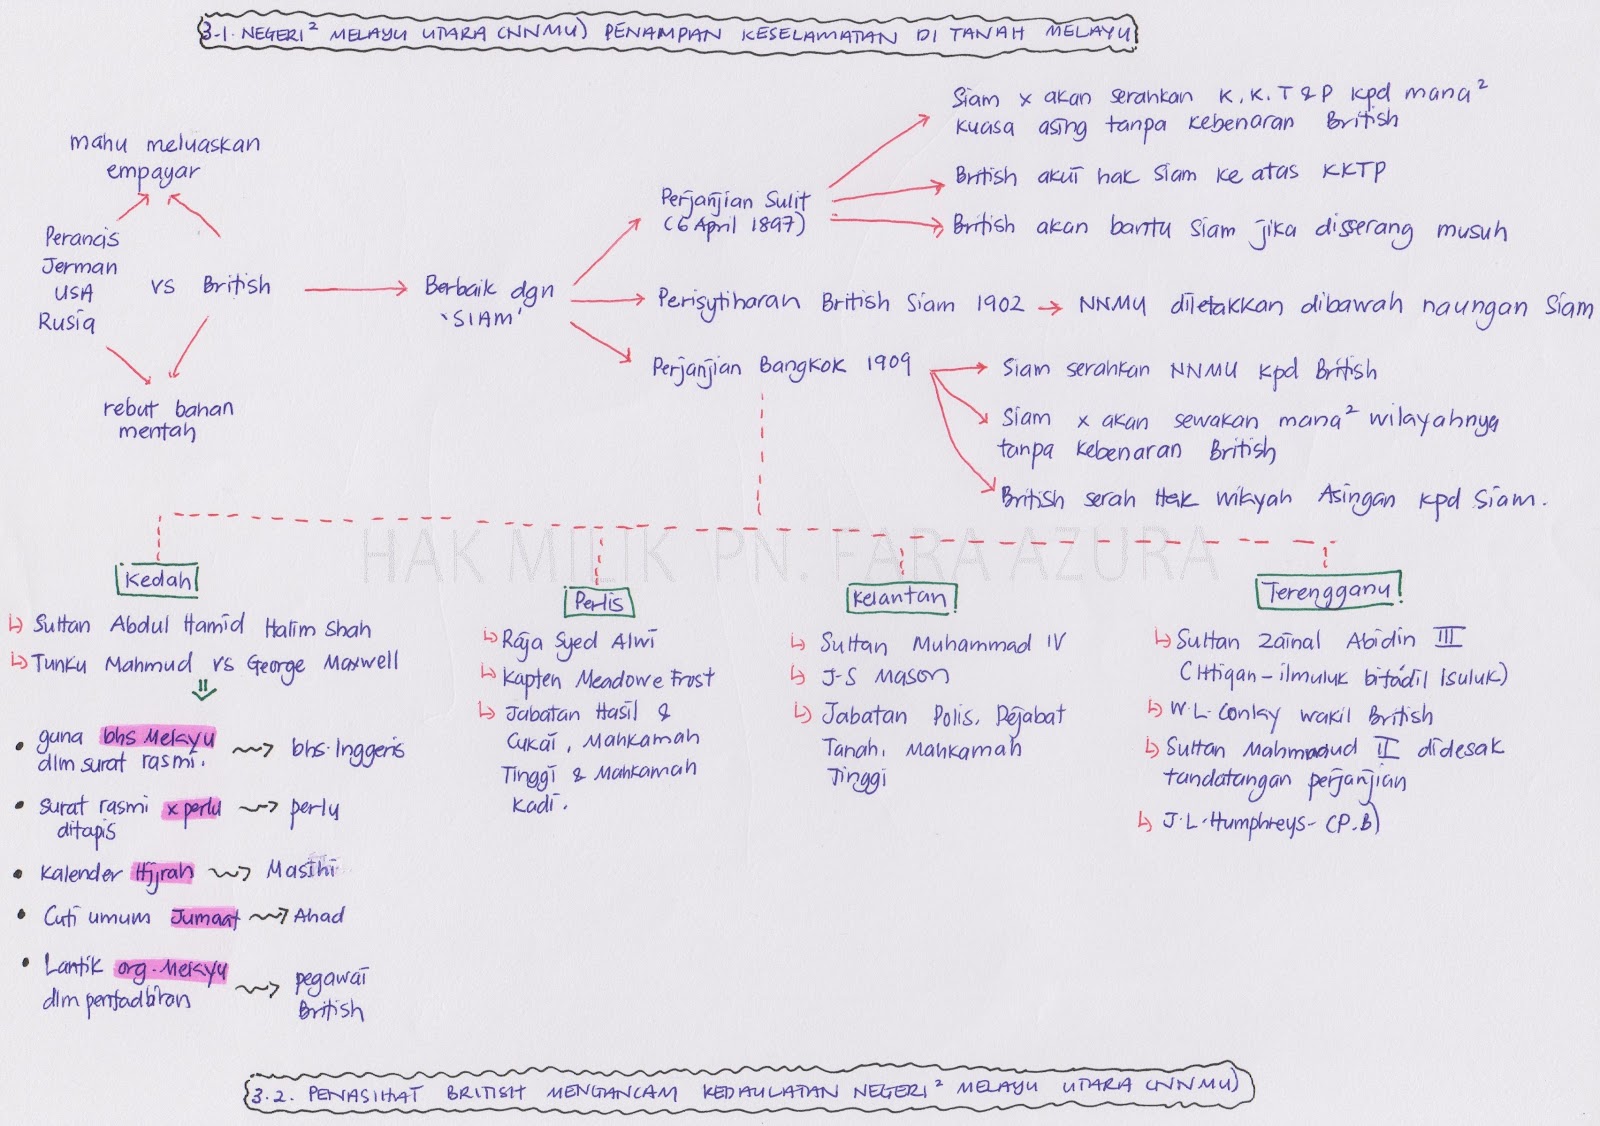 3.1. NEGERI² MELAYU UTARA (NNMU) PENAMPAN KESELAMATAN DI TANAH MELAYU
mahu meluaskan
empayar
Perancis
Jerman
USA
Rusia
vs British
rebut bahan
mentah
Berbaik dgn
'SIAM'
Perjanjian Sulit
(6 April 1897)
Siam x akan serahkan K.K.T & P kpd mana²
kuasa asing tanpa kebenaran British
British akui hak Siam ke atas KKTP
British akan bantu Siam jika disserang musuh
Perisytiharan British Siam 1902 → NNMU diletakkan dibawah naungan Siam
Perjanjian Bangkok 1909
Siam serahkan NNMU kpd British
Siam x akan sewakan mana² wilayahnya
tanpa kebenaran British
British serah Hak wilayah Asingan kpd Siam.
HAK MILIK PN. FARA AZURA
Kedah
Sultan Abdul Hamid Halim Shah
Tunku Mahmud vs George Maxwell
guna bhs Melayu
dlm surat rasmi.
bhs. Inggeris
surat rasmi x perlu
ditapis
perlu
Kalender Hijrah
Masihi
Cuti umum Jumaat
Ahad
Lantik org. Melayu
dlm pentadbiran
pegawai
British
Perlis
Raja Syed Alwi
Kapten Meadowe Frost
Jabatan Hasil &
Cukai, Mahkamah
Tinggi & Mahkamah
Kadi.
Kelantan
Sultan Muhammad IV
J-S Mason
Jabatan Polis, Pejabat
Tanah, Mahkamah
Tinggi
Terengganu
Sultan Zainal Abidin III
(Ittiqan-ilmuluk bitádil Isuluk)
W.L. Conlay wakil British
Sultan Mahmud II didesak
tandatangan perjanjian
J.L. Humphreys- (P.B)
3.2. PENASIHAT BRITISH MENGANCAM KEDAULATAN NEGERI² MELAYU UTARA (NNMU)